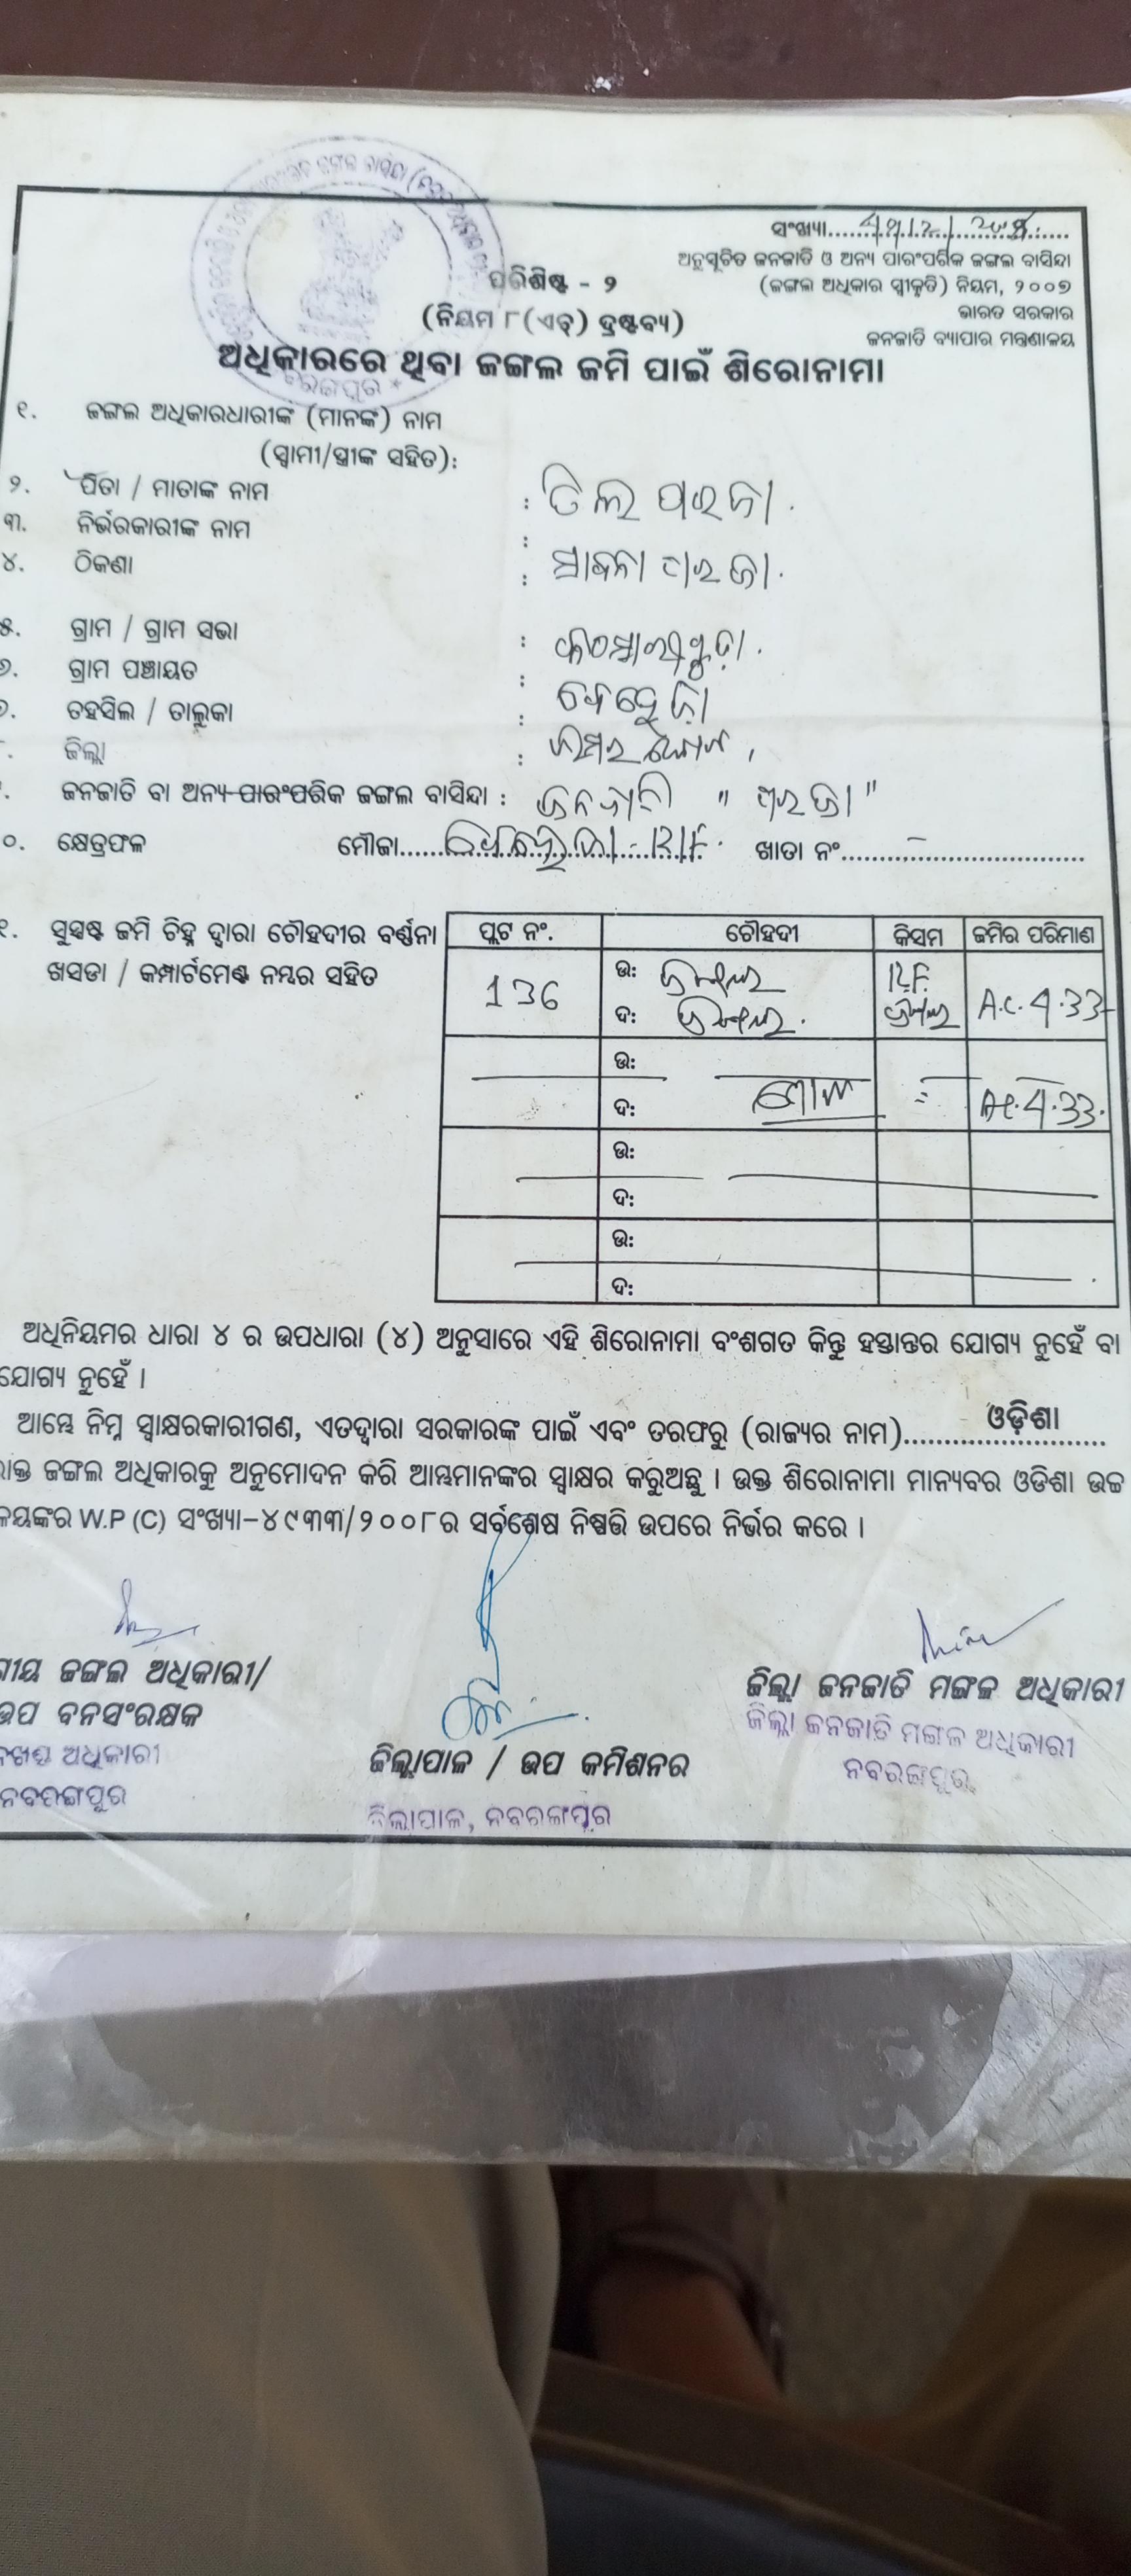 ସଂଖ୍ୟା
ଅନୁସୂଚିତ ଜନଜାତି ଓ ଅନ୍ୟ ପାରଂପରିକ ଜଙ୍ଗଲ ବାସିନ୍ଦା
(ଜଙ୍ଗଲ ଅଧିକାର ସ୍ୱୀକୃତି) ନିୟମ, ୨୦୦୭
ଭାରତ ସରକାର
ଜନଜାତି ବ୍ୟାପାର ମନ୍ତ୍ରଣାଳୟ
ପରିଶିଷ୍ଟ - ୨
(ନିୟମ ୮(ଏଚ୍) ଦ୍ରଷ୍ଟବ୍ୟ)
ଅଧିକାରରେ ଥିବା ଜଙ୍ଗଲ ଜମି ପାଇଁ ଶିରୋନାମା
୧. ଜଙ୍ଗଲ ଅଧିକାରଧାରୀଙ୍କ (ମାନଙ୍କ) ନାମ
(ସ୍ୱାମୀ/ସ୍ତ୍ରୀଙ୍କ ସହିତ):
୨. ପିତା / ମାତାଙ୍କ ନାମ : ତିଲ ପରଜା.
୩. ନିର୍ଭରକାରୀଙ୍କ ନାମ :
୪. ଠିକଣା : ପରଜା.
୫. ଗ୍ରାମ / ଗ୍ରାମ ସଭା :
୬. ଗ୍ରାମ ପଞ୍ଚାୟତ :
୭. ତହସିଲ / ତାଲୁକା :
ଜିଲ୍ଲା :
ଜନଜାତି ବା ଅନ୍ୟ ପାରଂପରିକ ଜଙ୍ଗଲ ବାସିନ୍ଦା : ଜନଜାତି " ପରଜା "
୦. କ୍ଷେତ୍ରଫଳ ମୌଜା R.F. ଖାତା ନଂ
୧. ସୁସ୍ପଷ୍ଟ ଜମି ଚିହ୍ନ ଦ୍ୱାରା ଚୌହଦୀର ବର୍ଣ୍ଣନା
ଖସଡା / କମ୍ପାର୍ଟମେଣ୍ଟ ନମ୍ବର ସହିତ
ପ୍ଲଟ ନଂ. ଚୌହଦୀ କିସମ ଜମିର ପରିମାଣ
136 ଉ: ଜଙ୍ଗଲ R.F. A.C. 4.33
ଦ: ଜଙ୍ଗଲ. ଜଙ୍ଗଲ
ଉ:
ଦ: = Ac. 4.33.
ଉ:
ଦ:
ଉ:
ଦ:
ଅଧିନିୟମର ଧାରା ୪ ର ଉପଧାରା (୪) ଅନୁସାରେ ଏହି ଶିରୋନାମା ବଂଶଗତ କିନ୍ତୁ ହସ୍ତାନ୍ତର ଯୋଗ୍ୟ ନୁହେଁ ବା
ଯୋଗ୍ୟ ନୁହେଁ ।
ଆମ୍ଭେ ନିମ୍ନ ସ୍ୱାକ୍ଷରକାରୀଗଣ, ଏତଦ୍ଦ୍ୱାରା ସରକାରଙ୍କ ପାଇଁ ଏବଂ ତରଫରୁ (ରାଜ୍ୟର ନାମ) ଓଡ଼ିଶା
ଜଙ୍ଗଲ ଅଧିକାରକୁ ଅନୁମୋଦନ କରି ଆମ୍ଭମାନଙ୍କର ସ୍ୱାକ୍ଷର କରୁଅଛୁ । ଉକ୍ତ ଶିରୋନାମା ମାନ୍ୟବର ଓଡିଶା ଉଚ୍ଚ
W.P (C) ସଂଖ୍ୟା-୪୯୩୩/୨୦୦୮ର ସର୍ବଶେଷ ନିଷ୍ପତ୍ତି ଉପରେ ନିର୍ଭର କରେ ।
ଜଙ୍ଗଲ ଅଧିକାରୀ/
ଉପ ବନସଂରକ୍ଷକ
ଅଧିକାରୀ
ନବରଙ୍ଗପୁର
ଜିଲ୍ଲାପାଳ / ଉପ କମିଶନର
ଜିଲ୍ଲାପାଳ, ନବରଙ୍ଗପୁର
ଜିଲ୍ଲା ଜନଜାତି ମଙ୍ଗଳ ଅଧିକାରୀ
ଜିଲ୍ଲା ଜନଜାତି ମଙ୍ଗଳ ଅଧିକାରୀ
ନବରଙ୍ଗପୁର